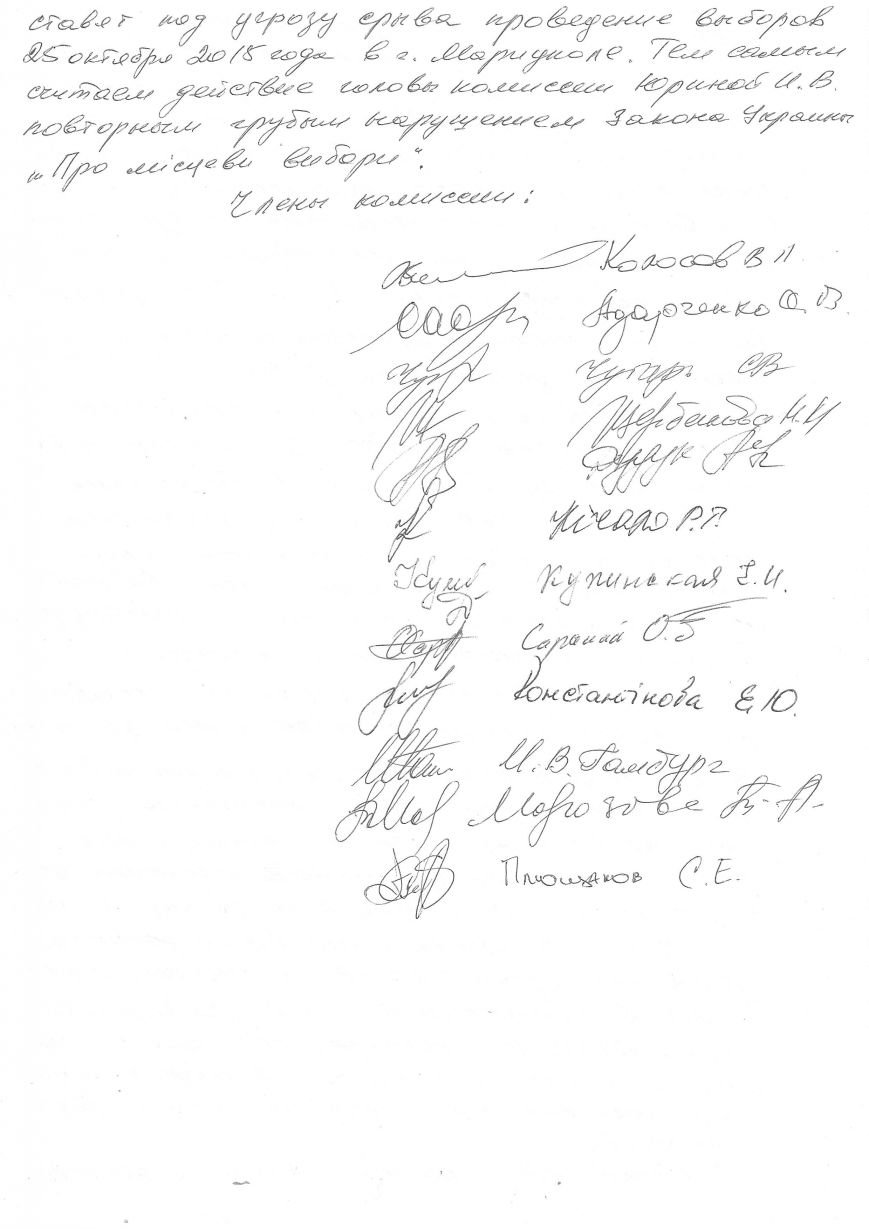 ставят под угрозу срыва проведение выборов
25 октября 2015 года в г. Мариуполе. Тем самым
считаем действие головы комиссии Юриной И. В.
повторным грубым нарушением Закона Украины
„Про місцеви вибори".
Члены комиссии:
Колосов В П.
Адарченко О. В.
Чупарь СВ
Щербакова Н.И
Кічаро Р.Г.
Купинская Г.И.
О.Б
Константінова Е.Ю.
И. В. Гамбург
Морозова Т. А.
С.Е.